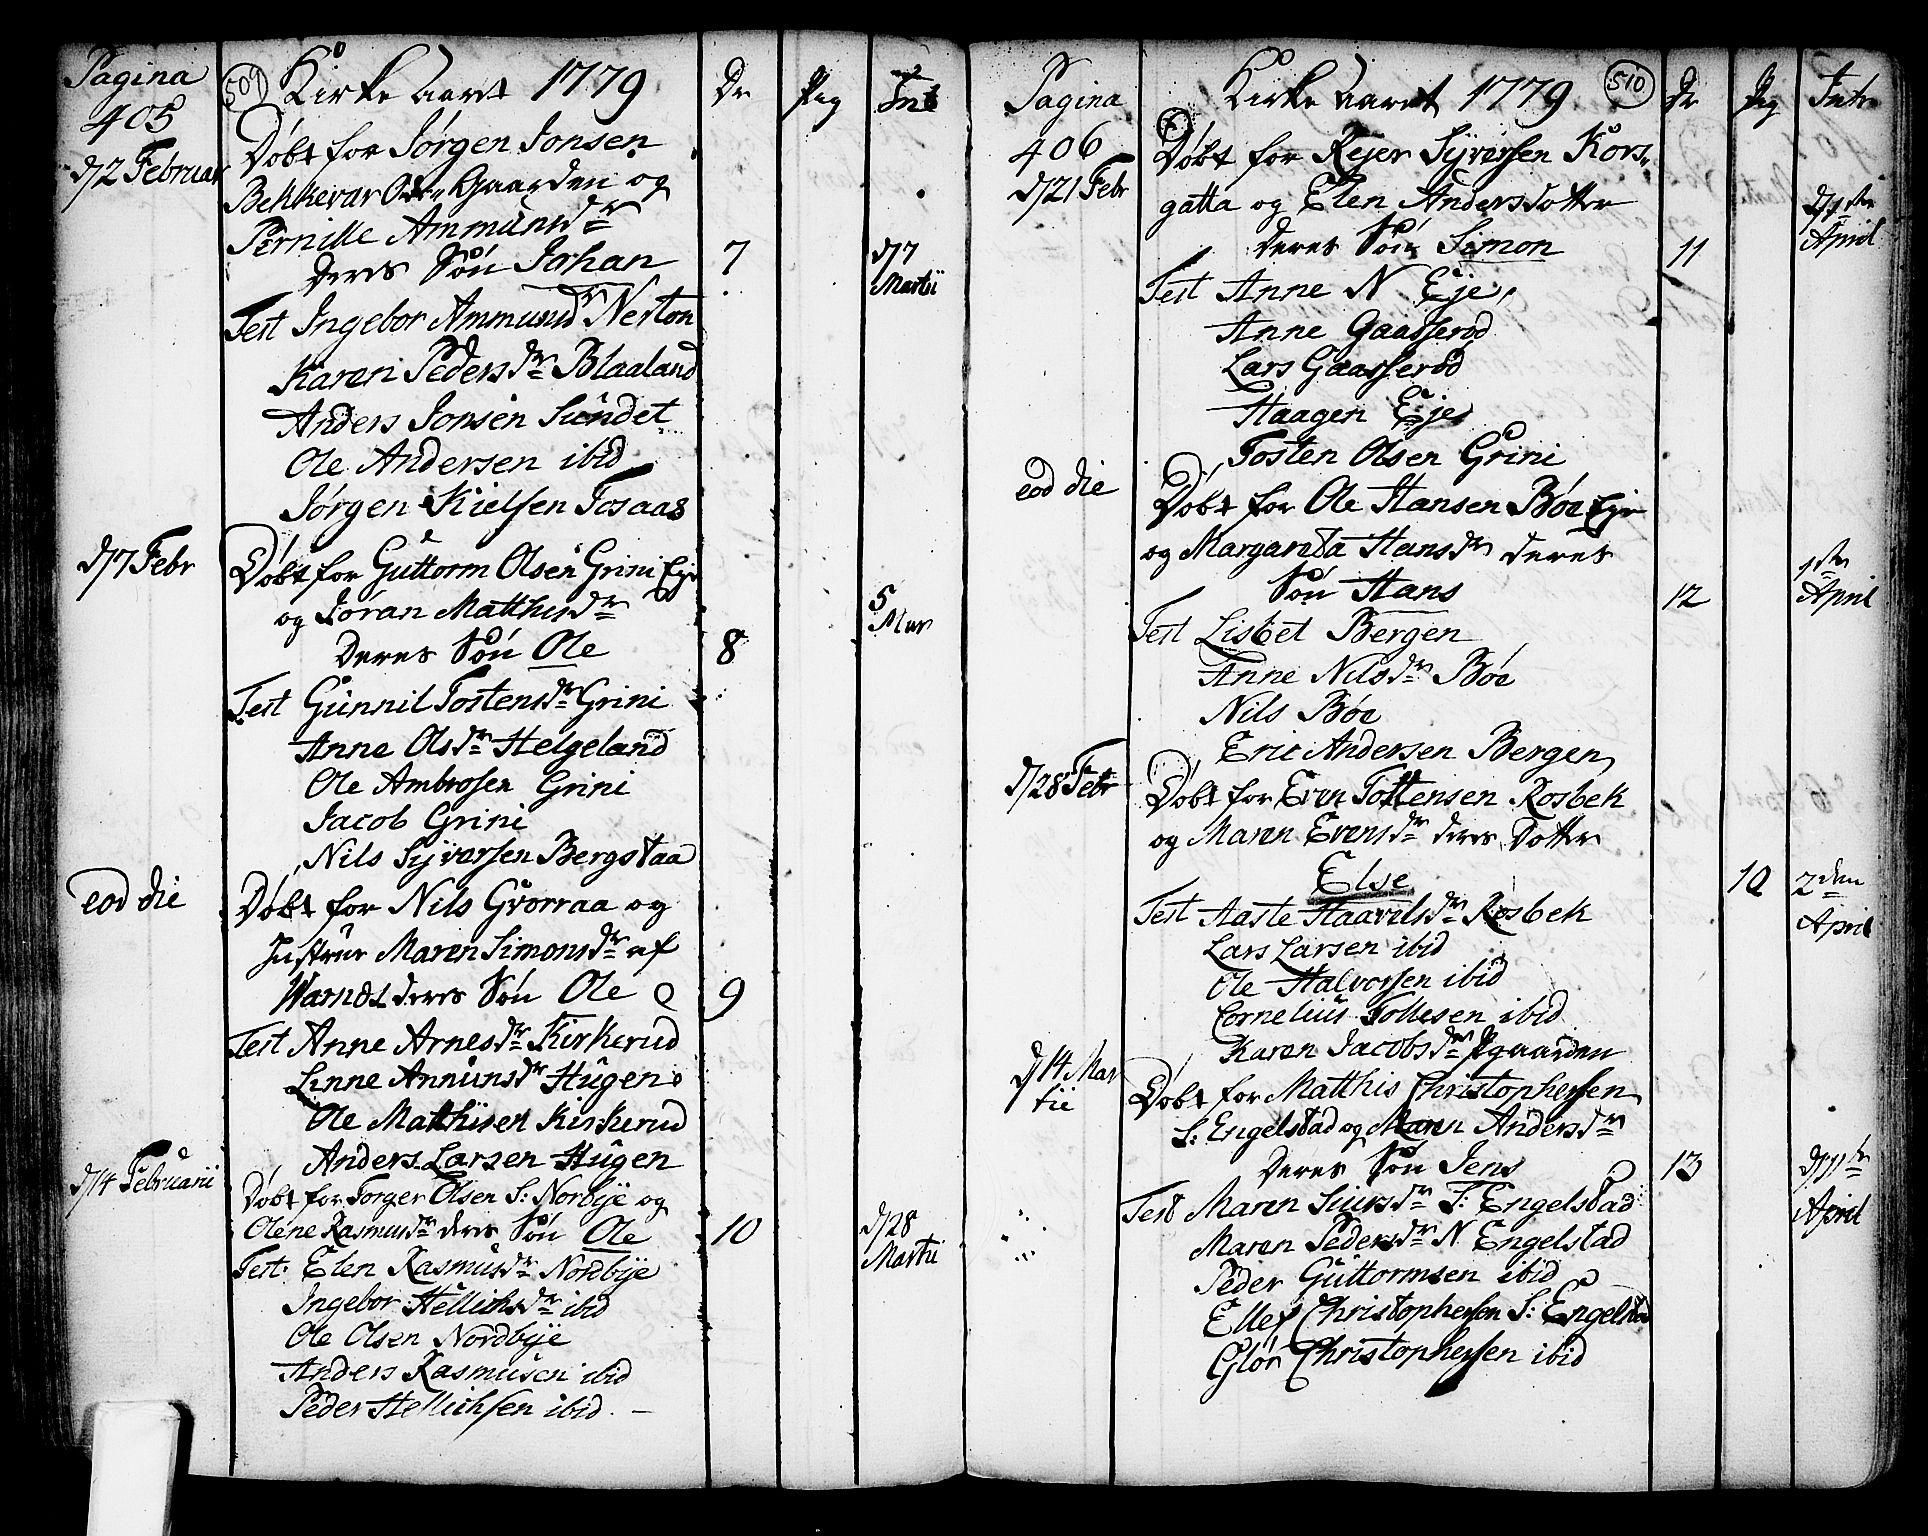 Pagina
405
509
Kirke aaret 1779
Dr
Pig
Int
d/2 Februar
Døbt for Jørgen Jonsen
Bekkevar Øst. Gaarden og
Pernille Ammunsdr
Deres Søn Johan
7
d/7
Martii
Test Ingebor Ammundr Nerton
Karen Pedersdr Blaaland
Anders Jonsen Sundet
Ole Andersen ibid
Jørgen Kielsen Fosaas
d/7 Febr
Døbt for Guttorm Olsen Grini Eje
og Joran Matthisdr
Deres Søn Ole
8
5
Mar
Test Gunnil Tostensdr Grini
Anne Olsdr Helgeland
Ole Ambrosen Grini
Jacob Grini
Nils Syversen Bergstaa
eod die
Døbt for Nils Grorraa og
Hustrue Maren Simonsdr af
deres Søn Ole
9
Test Anne Arnesdr Kirkerud
Linne Annunsdr Hugen
Ole Mathisen Kirkerud
Anders Larsen Hugen
d/14 Februarii
Døbt for Torger Olsen S: Norbye og
Olene Rasmusdr deres Søn Ole
10
d/28
Martii
Test: Elen Rasmusdr Nordbye
Ingebor Hellichsdr ibid
Ole Olsen Nordbye
Anders Rasmusen ibid
Peder Hellichsen ibid. —
Pagina
406
Kirke aaret 1779
510
Dr
Pig
Intr
d/21 Febr
Døbt for Rejer Syversen Kors-
gatta og Elen Andersdotter
deres Søn Simon
11
d/1ste
April
Test Anne N Eje
Anne Gaasserød
Lars Gaasserød
Haagen Eje
Tosten Olsen Grini
eod die
Døbt for Ole Hansen Bøe Eje
og Margareta Hansdr deres
Søn Hans
12
1ste
April
Test Lisbet Bergen
Anne Nilsdr Bøe
Nils Bøe
Eric Andersen Bergen
d/28 Febr
Døbt for Even Tostensen Rosbek
og Maren Evensdr deres Dotter
Else
10
2den
April
Test Aaste Haavelsdr Rosbek
Lars Larsen ibid
Ole Halvorsen ibid
Cornelius Tollesen ibid
Karen Jacobsdr Pgaarden
d/14 Mar
tii
Døbt for Matthis Christophersen
S: Engelstad og Maren Andersdr
Deres Søn Jens
13
d/11te
April
Test Maren Siursdr S: Engelstad
Maren Pedersdr N Engelstad
Peder Guttormsen ibid
Ellef Christophersen S: Engelstad
Glør Christophersen ibid